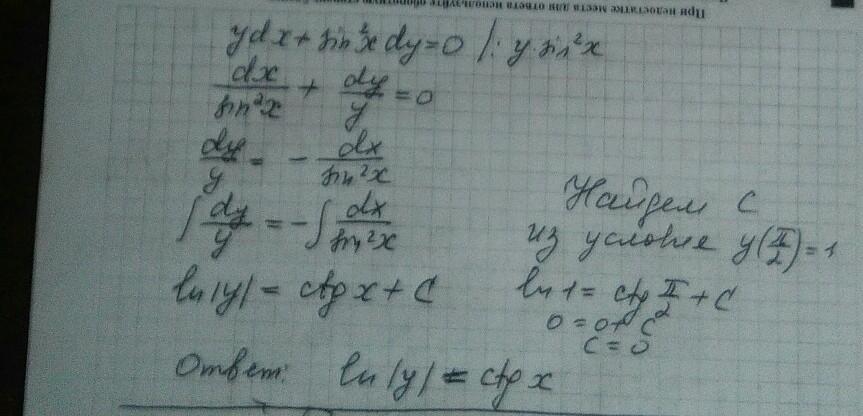 При недостатке места для ответа используйте оборотную
ydx + sin²x dy = 0 |: y·sin²x
dx/sin²x + dy/y = 0
dy/y = - dx/sin²x
∫ dy/y = -∫ dx/sin²x
ln|y| = ctg x + C
Найдем C
из условия y(π/2) = 1
ln 1 = ctg π/2 + C
0 = 0 + C
C = 0
Ответ: ln|y| = ctg x